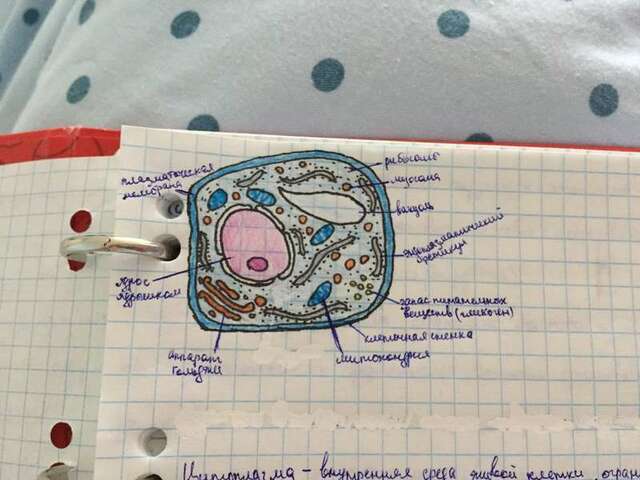 плазматическая
мембрана
ядро с
ядрышком
аппарат
Гольджи
рибосома
лизосома
вакуоль
эндоплазматический
ретикулум
запас питательных
веществ (гликоген)
клеточная стенка
митохондрия
Цитоплазма – внутренняя среда живой клетки, огран